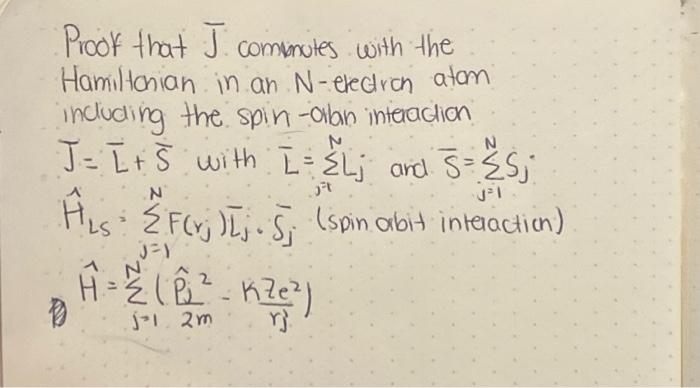 Proof that J̄ commutes with the
Hamiltonian in an N-electron atom
including the spin-orbn interaction
J̄ = L̄ + S̄ with L̄ = Σ_{j=1}^{N} Lj and S̄ = Σ_{j=1}^{N} Sj
Ĥ_LS = Σ_{j=1}^{N} F(rj) L̄j · S̄j (spin orbit interaction)
Ĥ = Σ_{j=1}^{N} (P̂j²/2m - KZe²/rj)